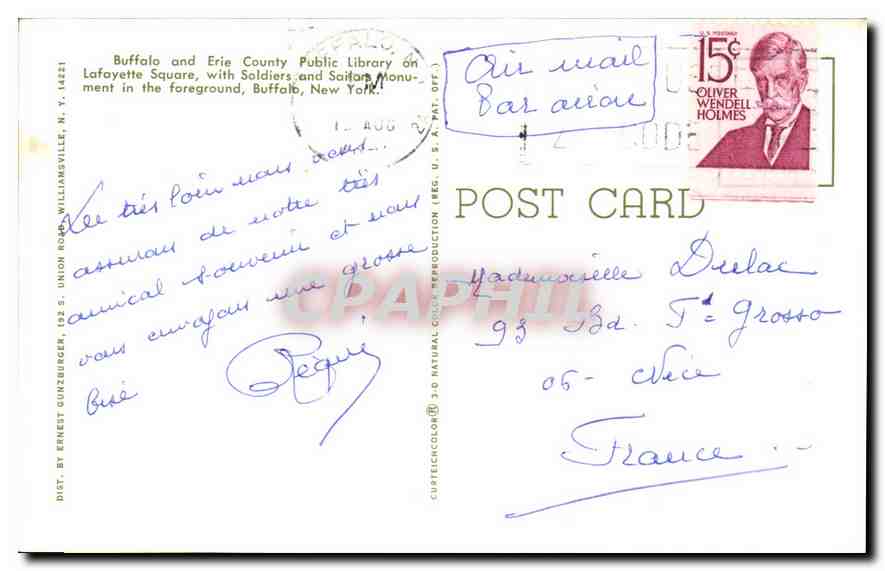 Buffalo and Erie County Public Library on
Lafayette Square, with Soldiers and Sailors Monu-
ment in the foreground, Buffalo, New York.
DIST. BY ERNEST GUNZBURGER, 192 S. UNION ROAD, WILLIAMSVILLE, N. Y. 14221
BUFFALO, N.Y.
AUG
Air mail
Par avion
U.S. POSTAGE
15¢
OLIVER
WENDELL
HOLMES
POST CARD
CURTEICHCOLOR® 3-D NATURAL COLOR REPRODUCTION (REG. U. S. A. PAT. OFF.)
très loin nous vous
assurons de notre très
amical souvenir et nous
vous envoyons une grosse
bise
Mademoiselle Dulac
93 Bd. Grosso
06- Nice
France
CPAPHIL